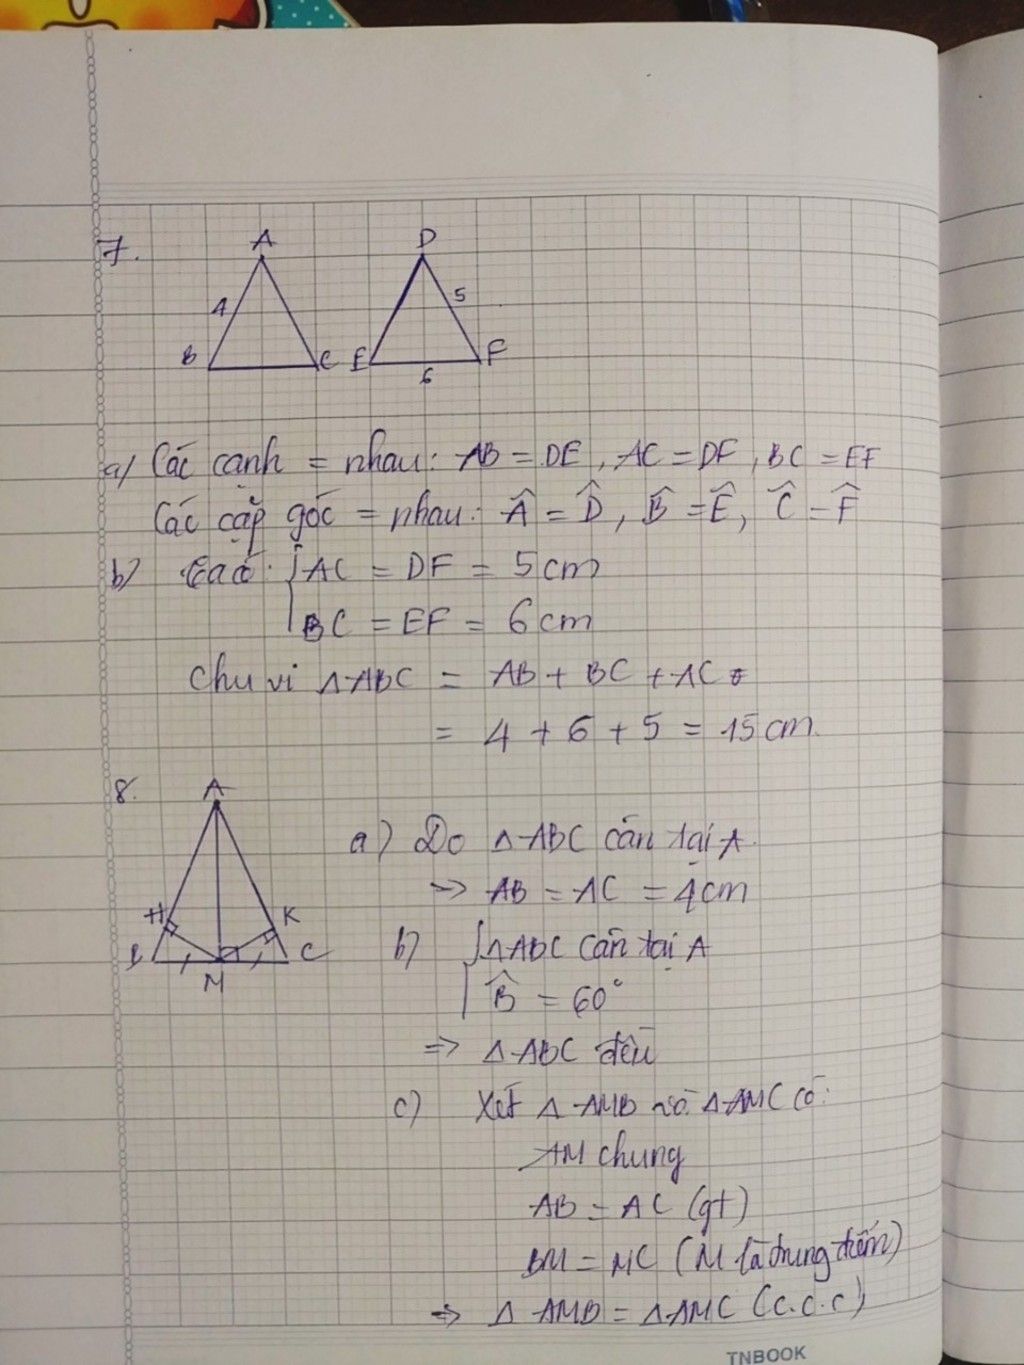 7.
A
D
4
5
B
C
E
F
6
a) Các cạnh = nhau: AB = DE, AC = DF, BC = EF
Các cặp góc = nhau: Â = D̂, B̂ = Ê, Ĉ = F̂
b) Ta có: { AC = DF = 5cm
BC = EF = 6cm
Chu vi ΔABC = AB + BC + AC
= 4 + 6 + 5 = 15cm.
8.
A
H
K
B
C
M
a) Do ΔABC cân tại A
=> AB = AC = 4cm
b) { ΔABC cân tại A
B̂ = 60°
=> ΔABC đều
c) Xét ΔAMB và ΔAMC có:
AM chung
AB = AC (gt)
BM = MC (M là trung điểm)
=> ΔAMB = ΔAMC (c.c.c)
TNBOOK